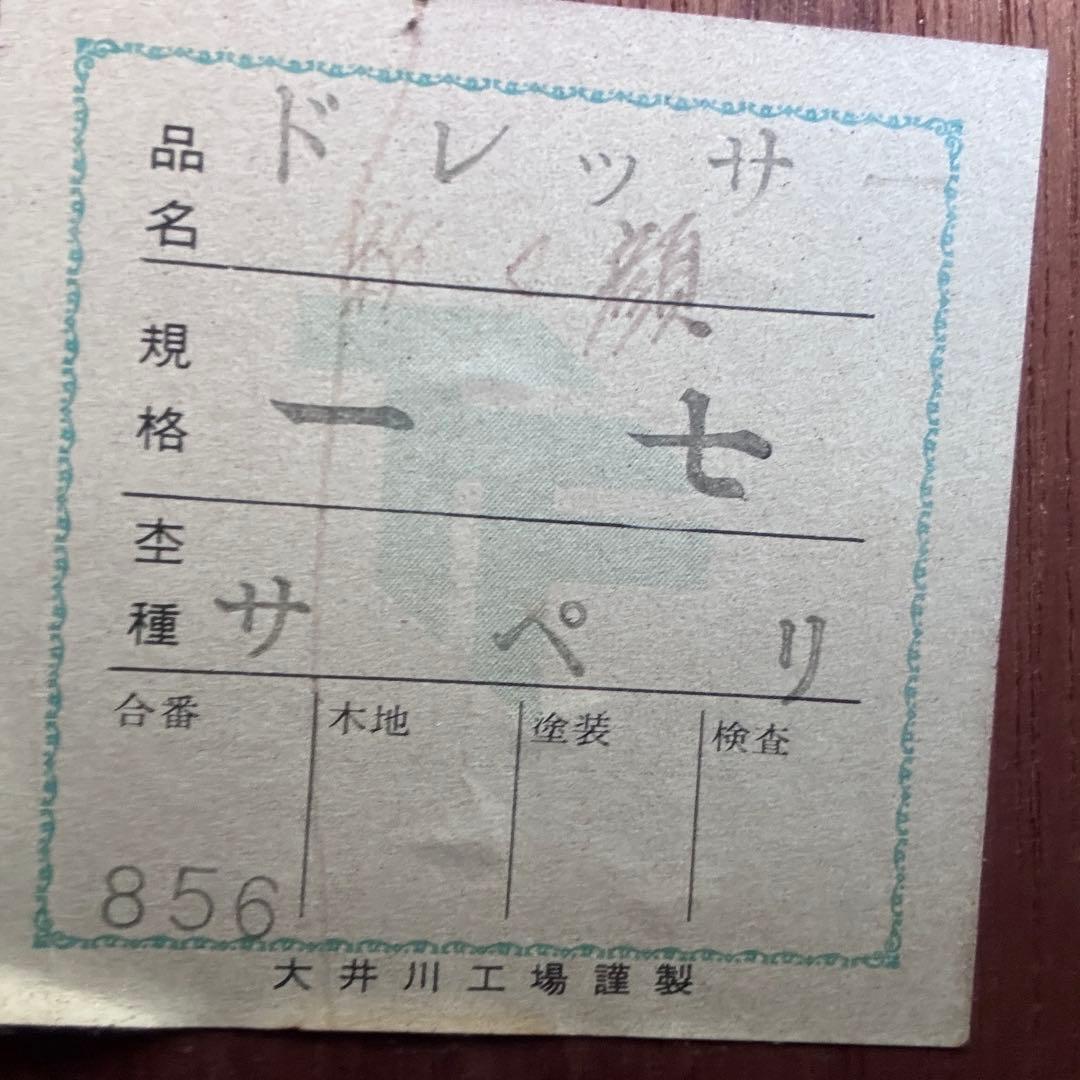 品名 ドレッサー
く顔
規格 一七
杢種 サペリ
合番 木地 塗装 検査
856
大井川工場謹製